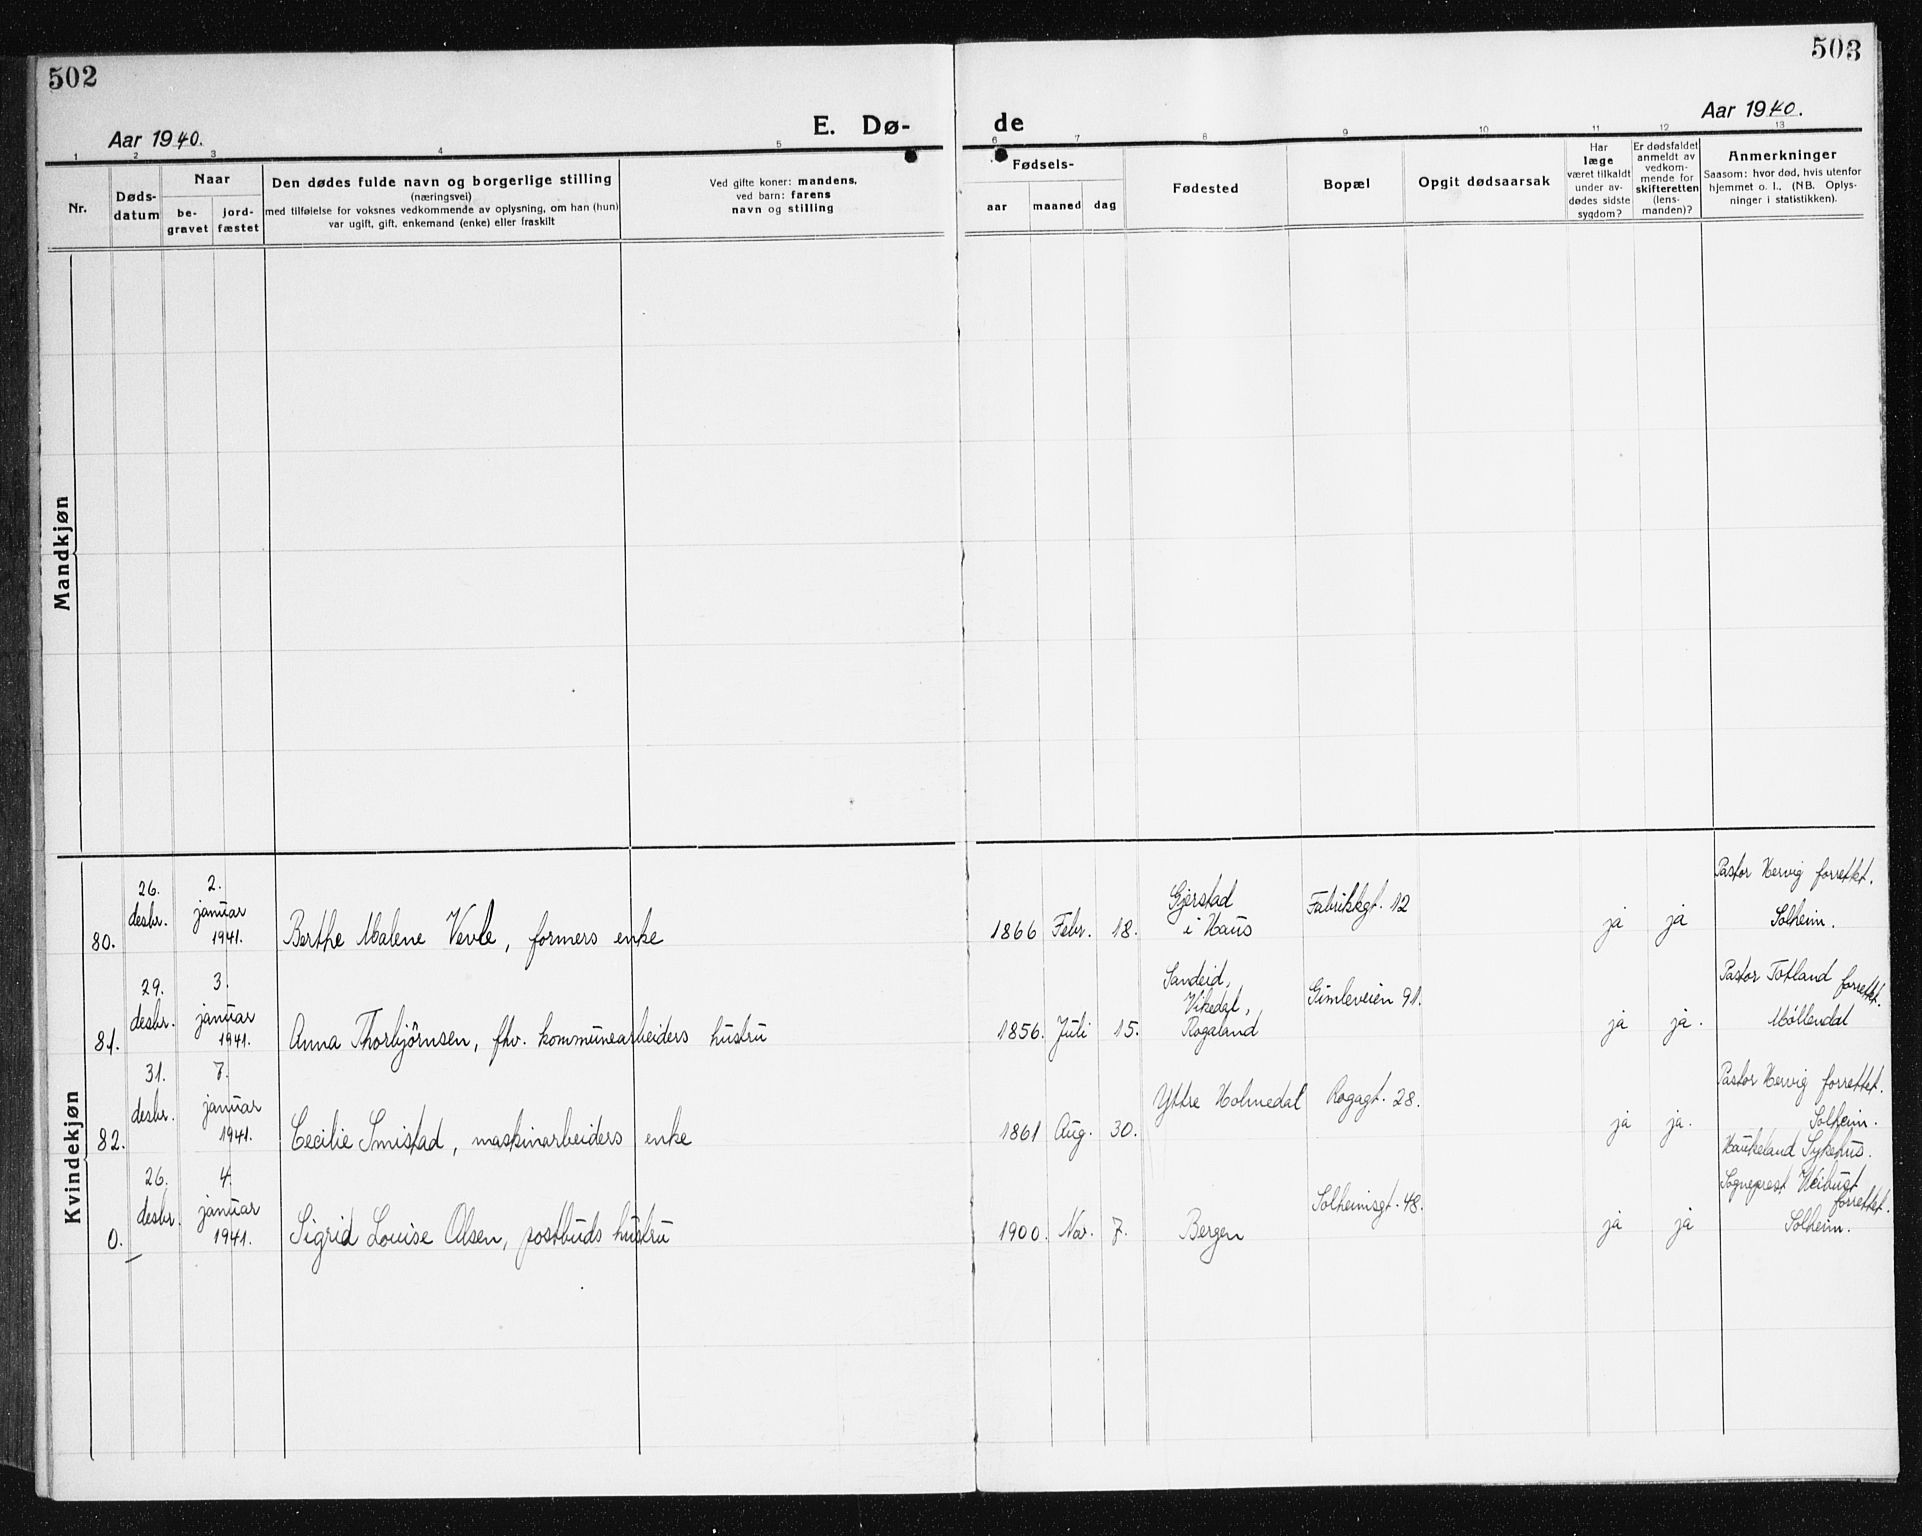 502
503
Aar 1940.
E. Dø-
de
Aar 1940.
1 2 3 4 5 6 7 8 9 10 11 12 13
Nr.
Døds-
datum
Naar
be-
gravet
jord-
fæstet
Den dødes fulde navn og borgerlige stilling
(næringsvei)
med tilføielse for voksnes vedkommende av oplysning, om han (hun)
var ugift, gift, enkemand (enke) eller fraskilt
Ved gifte koner: mandens,
ved barn: farens
navn og stilling
Fødsels-
aar
maaned
dag
Fødested
Bopæl
Opgit dødsaarsak
Har
læge
været tilkaldt
under av-
dødes sidste
sygdom?
Er dødsfaldet
anmeldt av
vedkom-
mende for
skifteretten
(lens-
manden)?
Anmerkninger
Saasom: hvor død, hvis utenfor
hjemmet o. l., (NB. Oplys-
ninger i statistikken).
Mandkjøn
Kvindekjøn
80.
26.
desbr.
2.
januar
1941.
Berthe Malene Vevle, formers enke
1866 Febr. 18.
Gjerstad
i Haus
Fabrikkgt. 12
ja
ja
Pastor Hervig forrettet.
Solheim.
81.
29.
desbr.
3.
januar
1941.
Anna Thorbjörnsen, fhv. kommunearbeiders hustru
1856. Juli 15.
Sandeid,
Vikedal,
Rogaland
Gimleveien 91.
ja
ja.
Pastor Totland forrettet.
Möllendal
82.
31.
desbr.
7.
januar
1941.
Cecilie Smistad, maskinarbeiders enke
1861 Aug. 30.
Yttre Holmedal
Rogagt. 28.
ja
ja.
Pastor Hervig forrettet.
Solheim.
0.
26.
desbr.
4.
januar
1941.
Sigrid Louise Olsen, postbuds hustru
1900. Nov. 7.
Bergen
Solheimsgt. 48.
ja
ja
Haukeland Sykehus.
Sogneprest Weibust
forrettet.
Solheim.